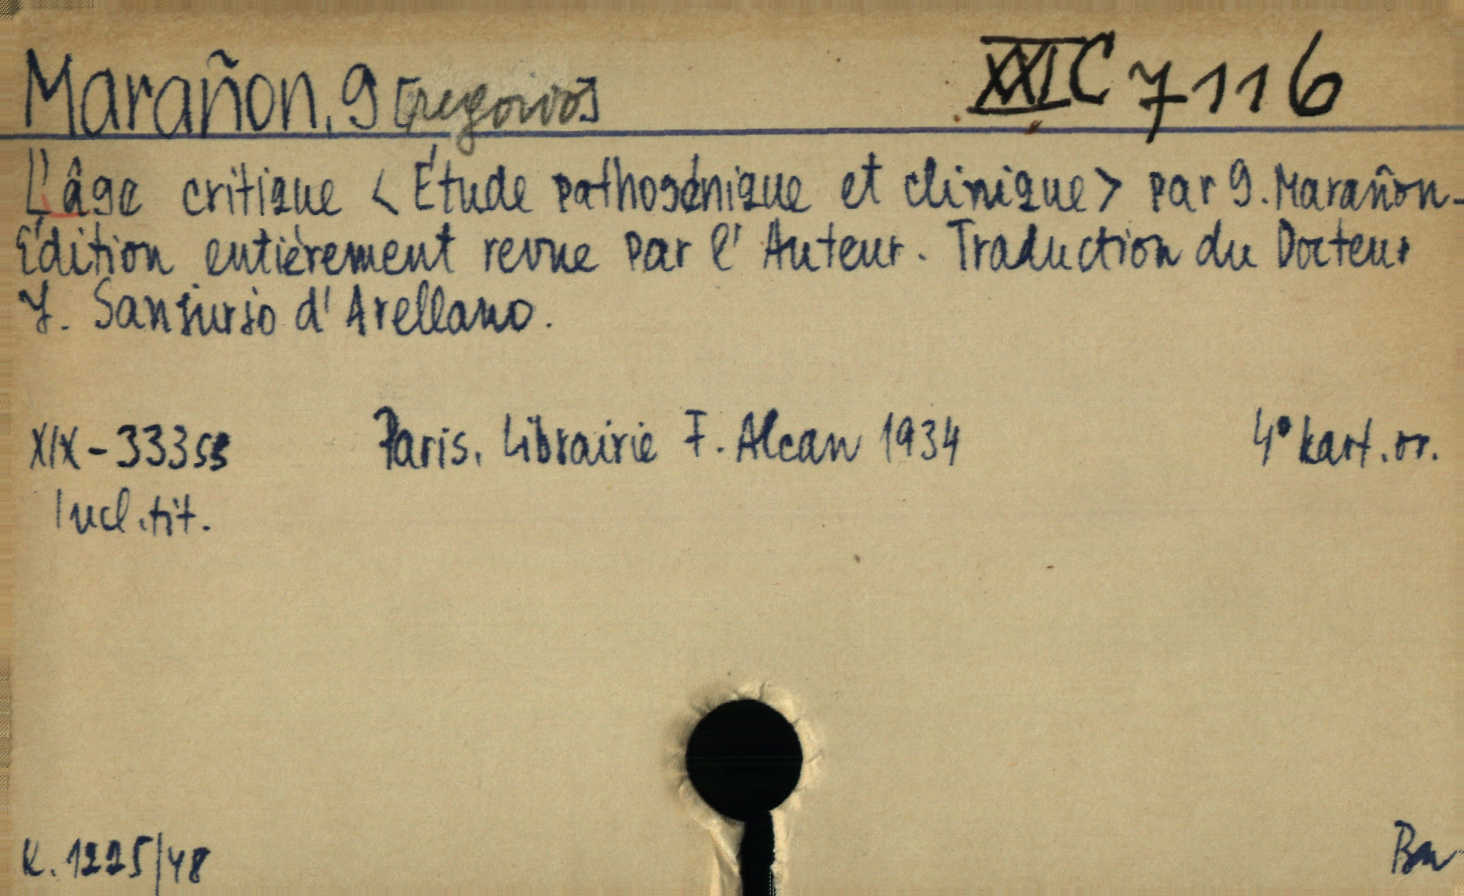 Marañon, G[regorio]
XXI C 7116
L'âge critique <Étude pathogénique et clinique> par G. Marañon-
Édition entièrement revue par l'Auteur. Traduction du Docteur
J. Sanjurjo d'Arellano.
XIX-333 ss Paris. Librairie F. Alcan 1934 4° kart. or.
Incl. tit.
K. 1225/48